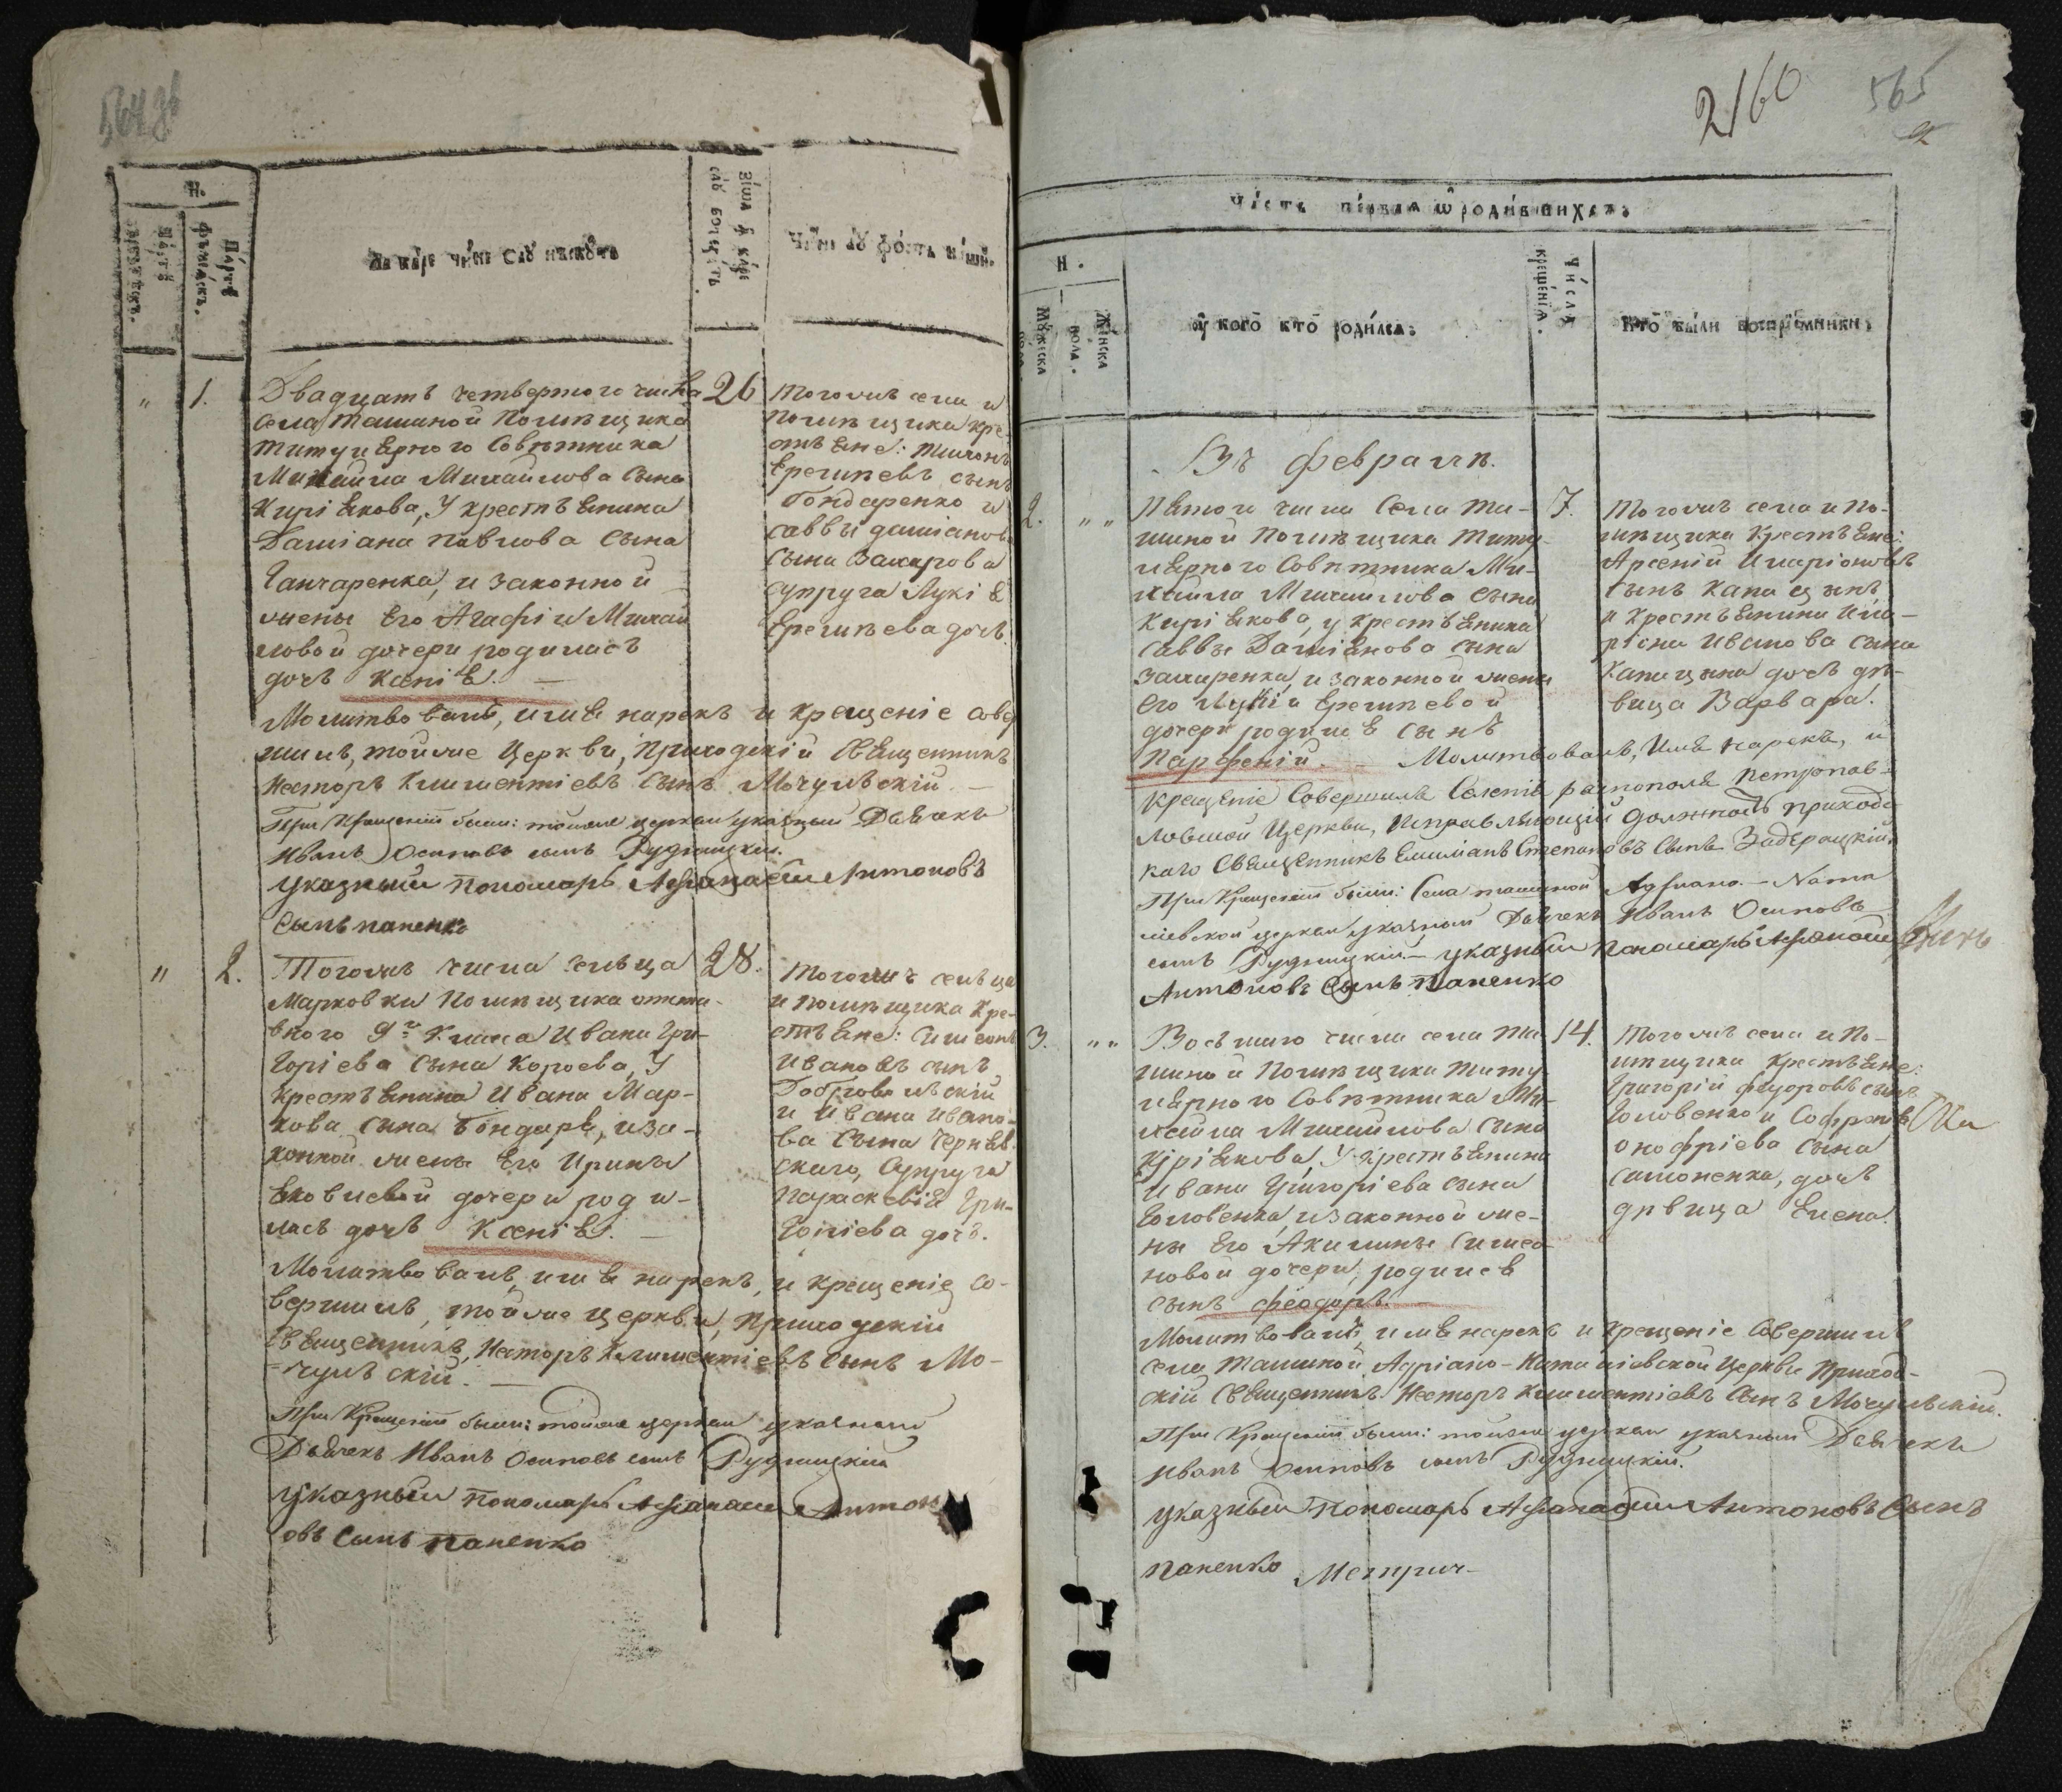 564 об
Н.
1. Двадцать четвертого числа 26
села Ташиной помѣщика
титулярного Совѣтника
Михаила Михайлова Сына
Киріякова, У крестьянина
Даміана Павлова Сына
Ганчаренка, и законной
жены Его Агафіи Михай
ловой дочери родилась
дочь Ксенія.
Тогожъ села и
помѣщика кре-
стьяне:
Еремѣевъ сынъ
Бондаренко и
саввы даміанова
Сына Захарова
супруга Лукія
Еремѣева дочь.
Молитвовалъ, имя нарекъ и крещеніе совер
шилъ, тойже Церкви, Приходскій Священникъ
Несторъ Климентіевъ Сынъ Мочульскій.
При Крещеніи были: тойже церкви указный Дьячекъ
Иванъ Осиповъ сынъ Рудницкій.
указный пономарь Афанасій Антоновъ
Сынъ паненко
" 2. Тогожъ числа сельца 28.
Марковки помѣщика
Ивана Гри-
горіева Сына Короева, У
крестьянина Ивана Мар-
кова сына Бондаря, и за-
конной жены Его Ирины
Яковлевой дочери роди-
лась дочь Ксенія.
Тогожъ сельца
и помѣщика Кре-
стьяне: Симеонъ
Ивановъ сынъ
Доброволскій
и Ивана Ивано-
ва Сына Черняв-
скаго, Супруга
Параскевія Гри-
горіева дочь.
Молитвовалъ, имя нарекъ, и крещеніе со-
вершилъ, тойже церкви, Приходскій
Священникъ, Несторъ Климентіевъ Сынъ Мо-
чульскій.
При Крещеніи были: тойже церкви указный
Дьячекъ Иванъ Осиповъ сынъ Рудницкій
указный пономарь Афанасій Антон
овъ Сынъ паненко
2160 565
Часть первая ѡ родившихся:
Н.
Мужеска
Женска пола.
У кого кто родился:
Числа крещенія.
Кто были воспріемники:
Въ февралѣ.
2. " " Пятого числа Села Та- 7.
шиной Помѣщика титу-
лярного Совѣтника Ми-
хайла Михайлова Сына
Киріякова, у крестьянина
саввы Даміянова сына
Захаренка, и законной жены
Его Лукіи Еремѣевой
дочери родился сынъ
Парфеній.
Тогожъ села и по-
мѣщика Крестьяне:
Арсеній Иларіоновъ
сынъ Капицынъ
и Крестьянина Ила-
ріона Иванова сына
Капицына дочь дѣ-
вица Варвара.
Молитвовалъ, Имя нарекъ, и
крещеніе Совершилъ Селенія Петропав-
ловской Церкви, Исправляющій должность приходс
каго Священникъ Емиліанъ Степановъ Сынъ Задерацкій.
При Крещеніи были: Села ташиной Адріано-Ната
ліевской церкви указный Дьячекъ Иванъ Осиповъ
сынъ Рудницкій – указный пономарь Афанасій
Антоновъ Сынъ Паненко
3. " " Восьмаго числа села Та 14.
шиной Помѣщика титу
лярного Совѣтника Ми-
хайла Михайлова Сына
Кіріякова, У крестьянина
Ивана Григоріева сына
Головенка, и законной же-
ны Его Акилины Симео-
новой дочери, родился
сынъ феодоръ.
Тогожъ села и По-
мѣщика Крестьяне:
Григорій федоровъ сынъ
Головенко и Софронія
онофріева Сына
Самоненка, дочь
дѣвица Елена.
Молитвовалъ, имя нарекъ и Крещеніе Совершилъ
села Ташиной Адріано-Наталіевской Церкви Приход-
скій Священникъ Несторъ Климентіевъ Сынъ Мочульскій.
При Крещеніи были: тойже церкви указный Дьячекъ
Иванъ Осиповъ сынъ Рудницкій.
указный пономарь Афанасій Антоновъ Сынъ
паненко Метрич-